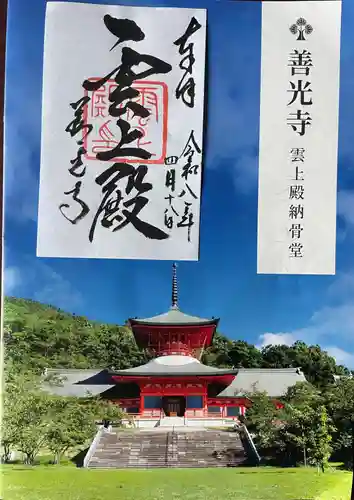 奉拝
令和八年
四月十八日
雲上殿
善光寺
善光寺
雲上殿納骨堂